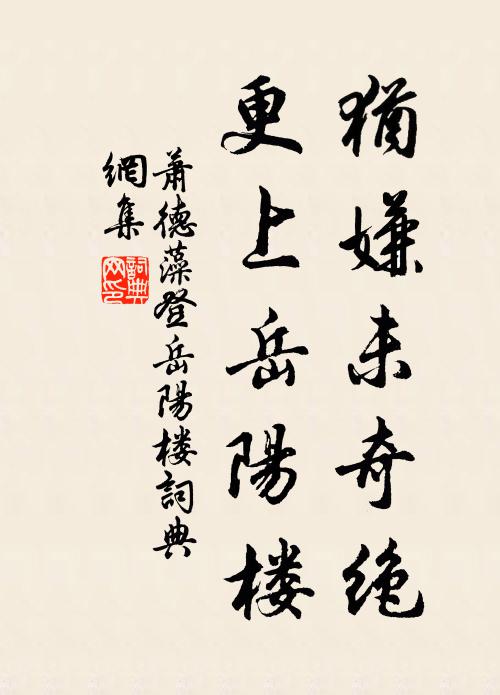 猶嫌未奇绝
更上岳陽楼
蕭德藻登岳陽楼詞典
網集
詞典
网印